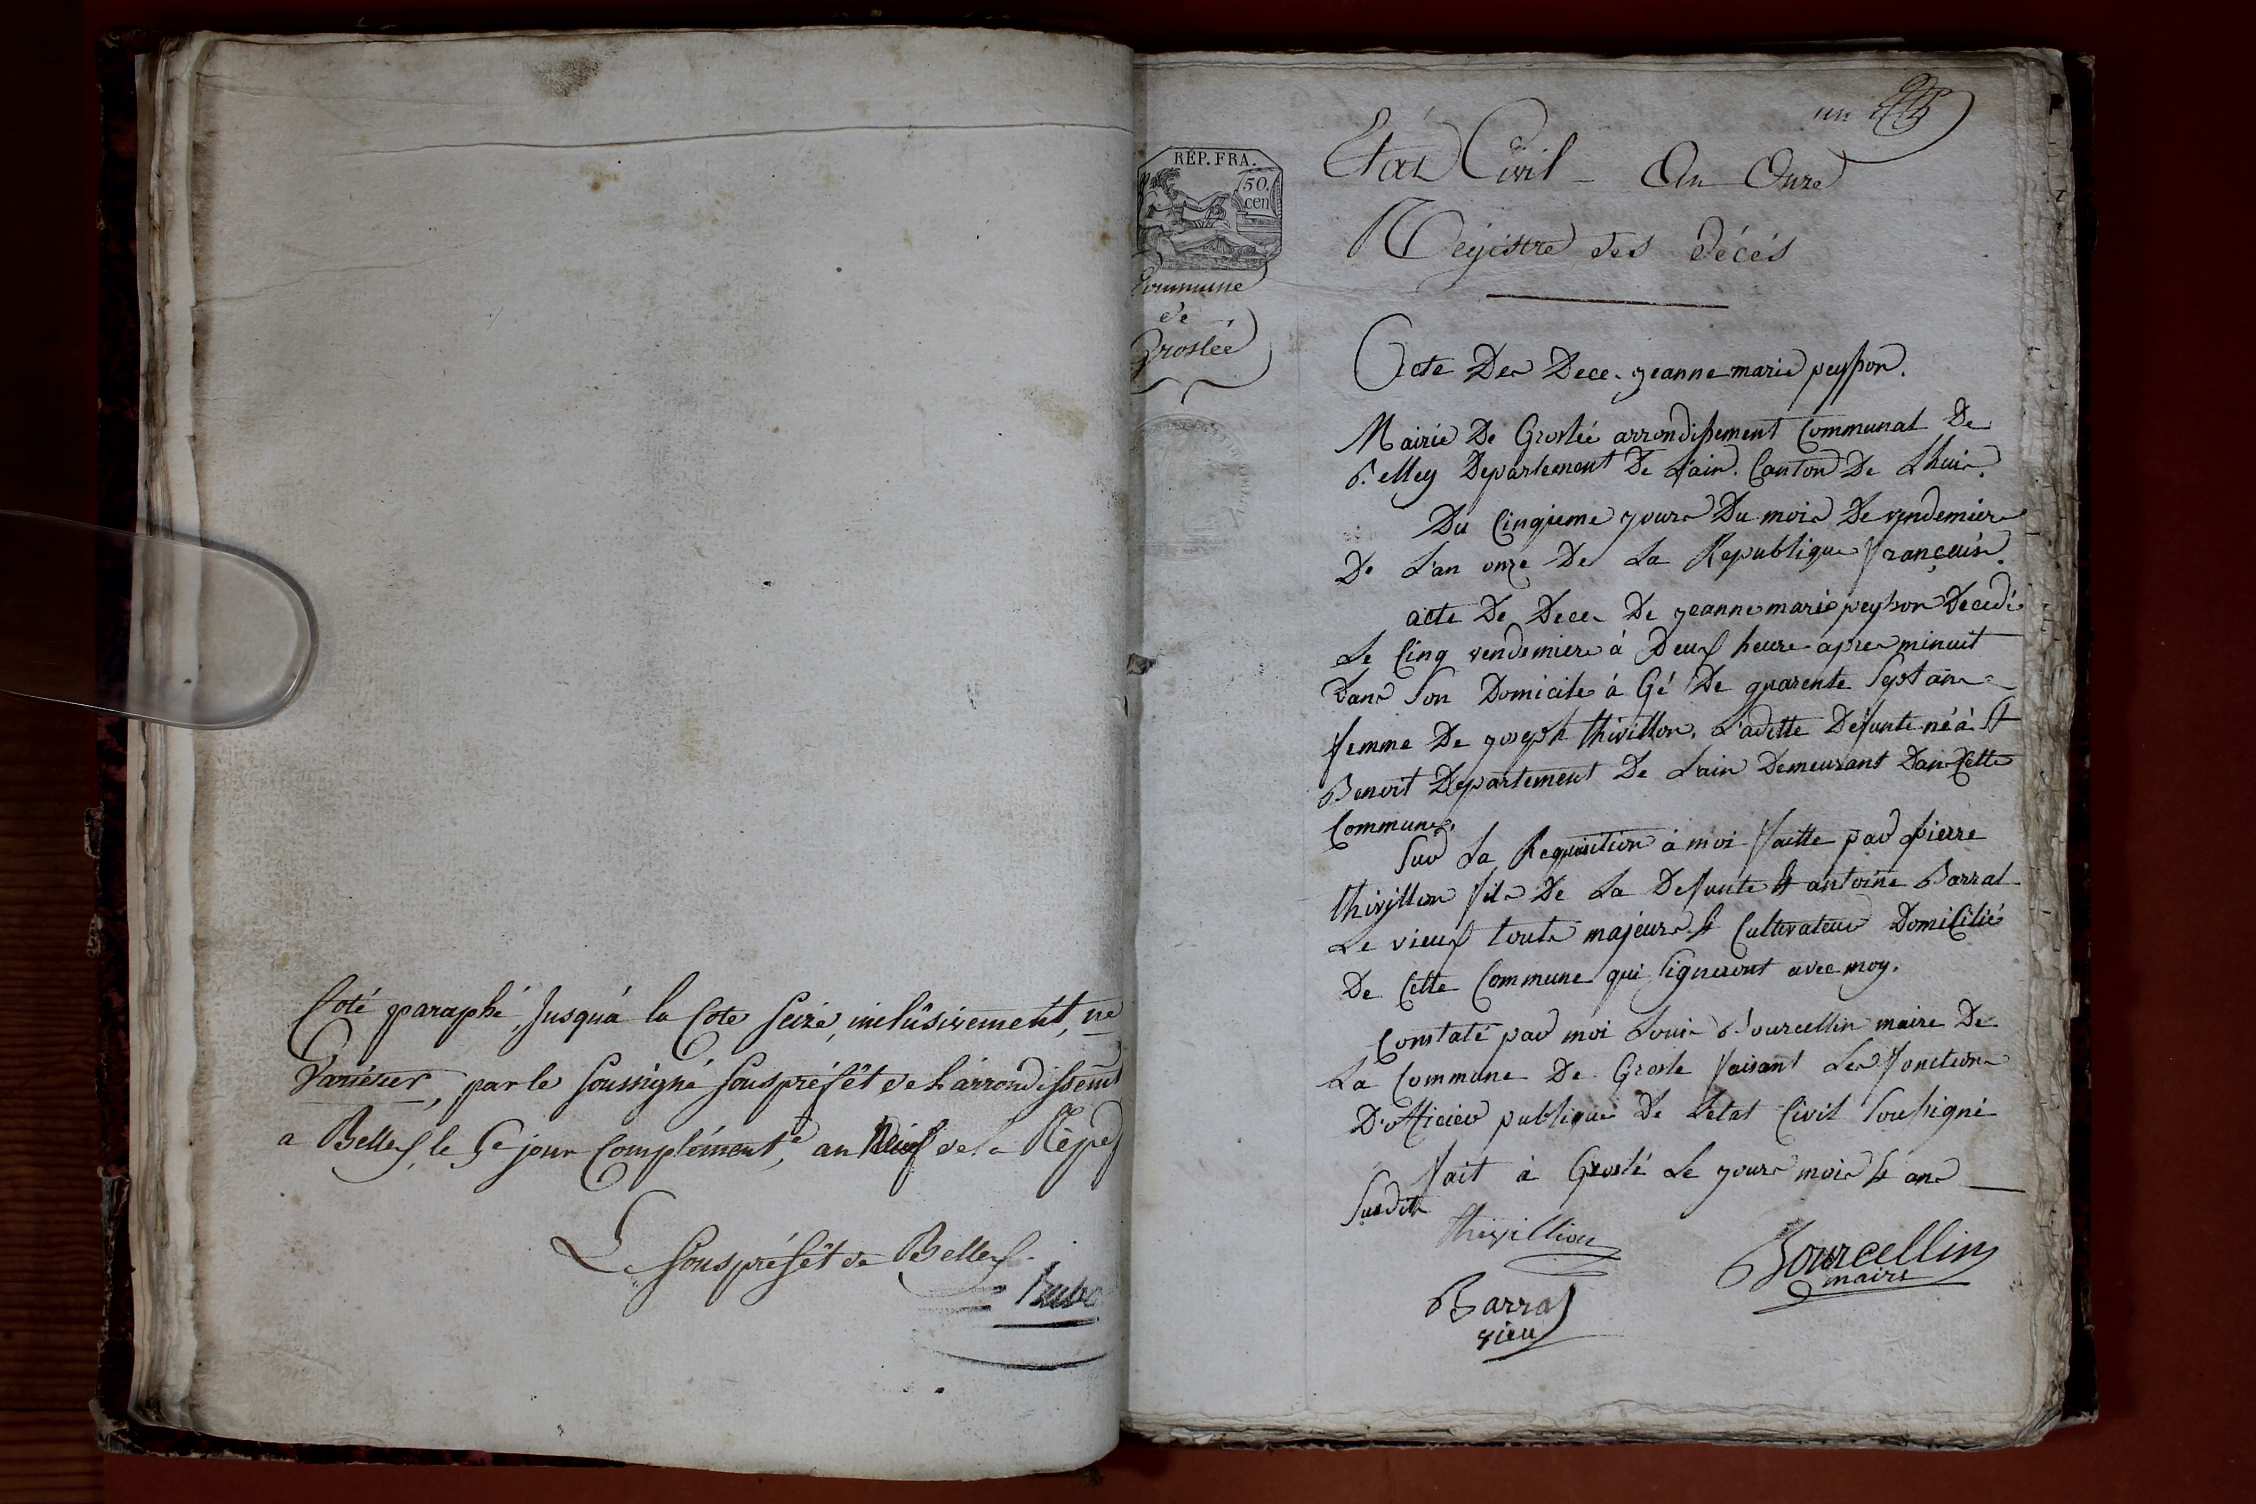 Coté paraphé, Jusqu'à la Cote Seize, inclusivement, ne
Varietur, par le Soussigné Souspréfêt de L'arrondissemt
a Belley, le 5e jour Complément.e, an de la Rép.
Le Souspréfêt de Belley.
un
Etat Civil - An Onze
Registre des décés
RÉP. FRA.
50. cen
Commune
de
Groslée
Acte De Dece. jeanne marie peysson.
Mairie De Groslée arrondissement Communal De
Belley Departement De L'ain. Canton De Lhuis.
Du Cinqieme jours Du mois De vendemiere
De L'an onze De La Republique française.
acte De Deces De jeanne marie peysson Decedé
Le Cinq vendemiere à Deux heure apres minuit
Dans Son Domicile à Gé De quarente Sept ans
femme De joseph thivillon. L'aditte Defunte né à St
Benoit Departement De L'ain Demeurant Dans Cette
Commune.
Sur La Requisition à moi faitte par pierre
thivillon fils De La Defunte & antoine Barral
Le vieux touts majeurs & Cultivateur Domicilié
De Cette Commune qui Signeront avec moy.
Constaté par moi Louis Bourcellin maire De
La Commune De Grosle faisant Les fonctions
D'officier publique De Letat Civil Soussigné
fait à Groslé Le jours mois & ans
Susdits
thivillion
Bourcellin
maire
Barral
vieu